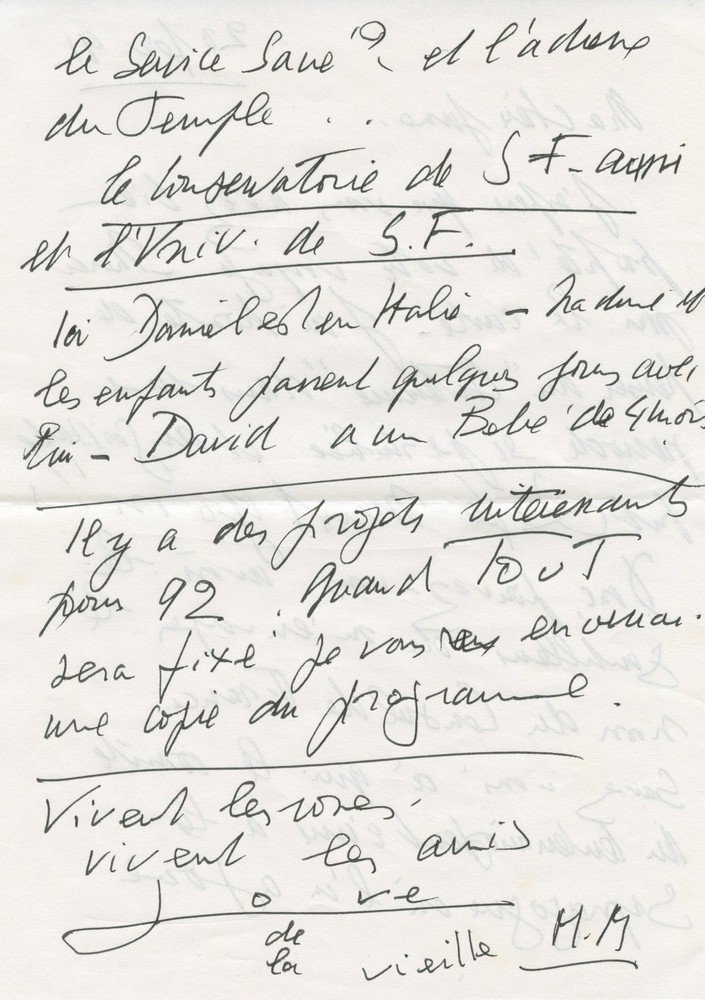 le Service Sacré ? et l'adresse
du Temple . . .
le Conservatoire de S F- aussi
et l'Univ. de S.F.
Ici Daniel est en Italie - Nadine et
les enfants passent quelques jours avec
lui - David a un Bébé de 4 mois
Il y a des projets intéressants
pour 92 . quand TOUT
sera fixé je vous en enverrai
une copie du programme.
Vivent les roses,
vivent les amis
Love
de
la vieille M.M